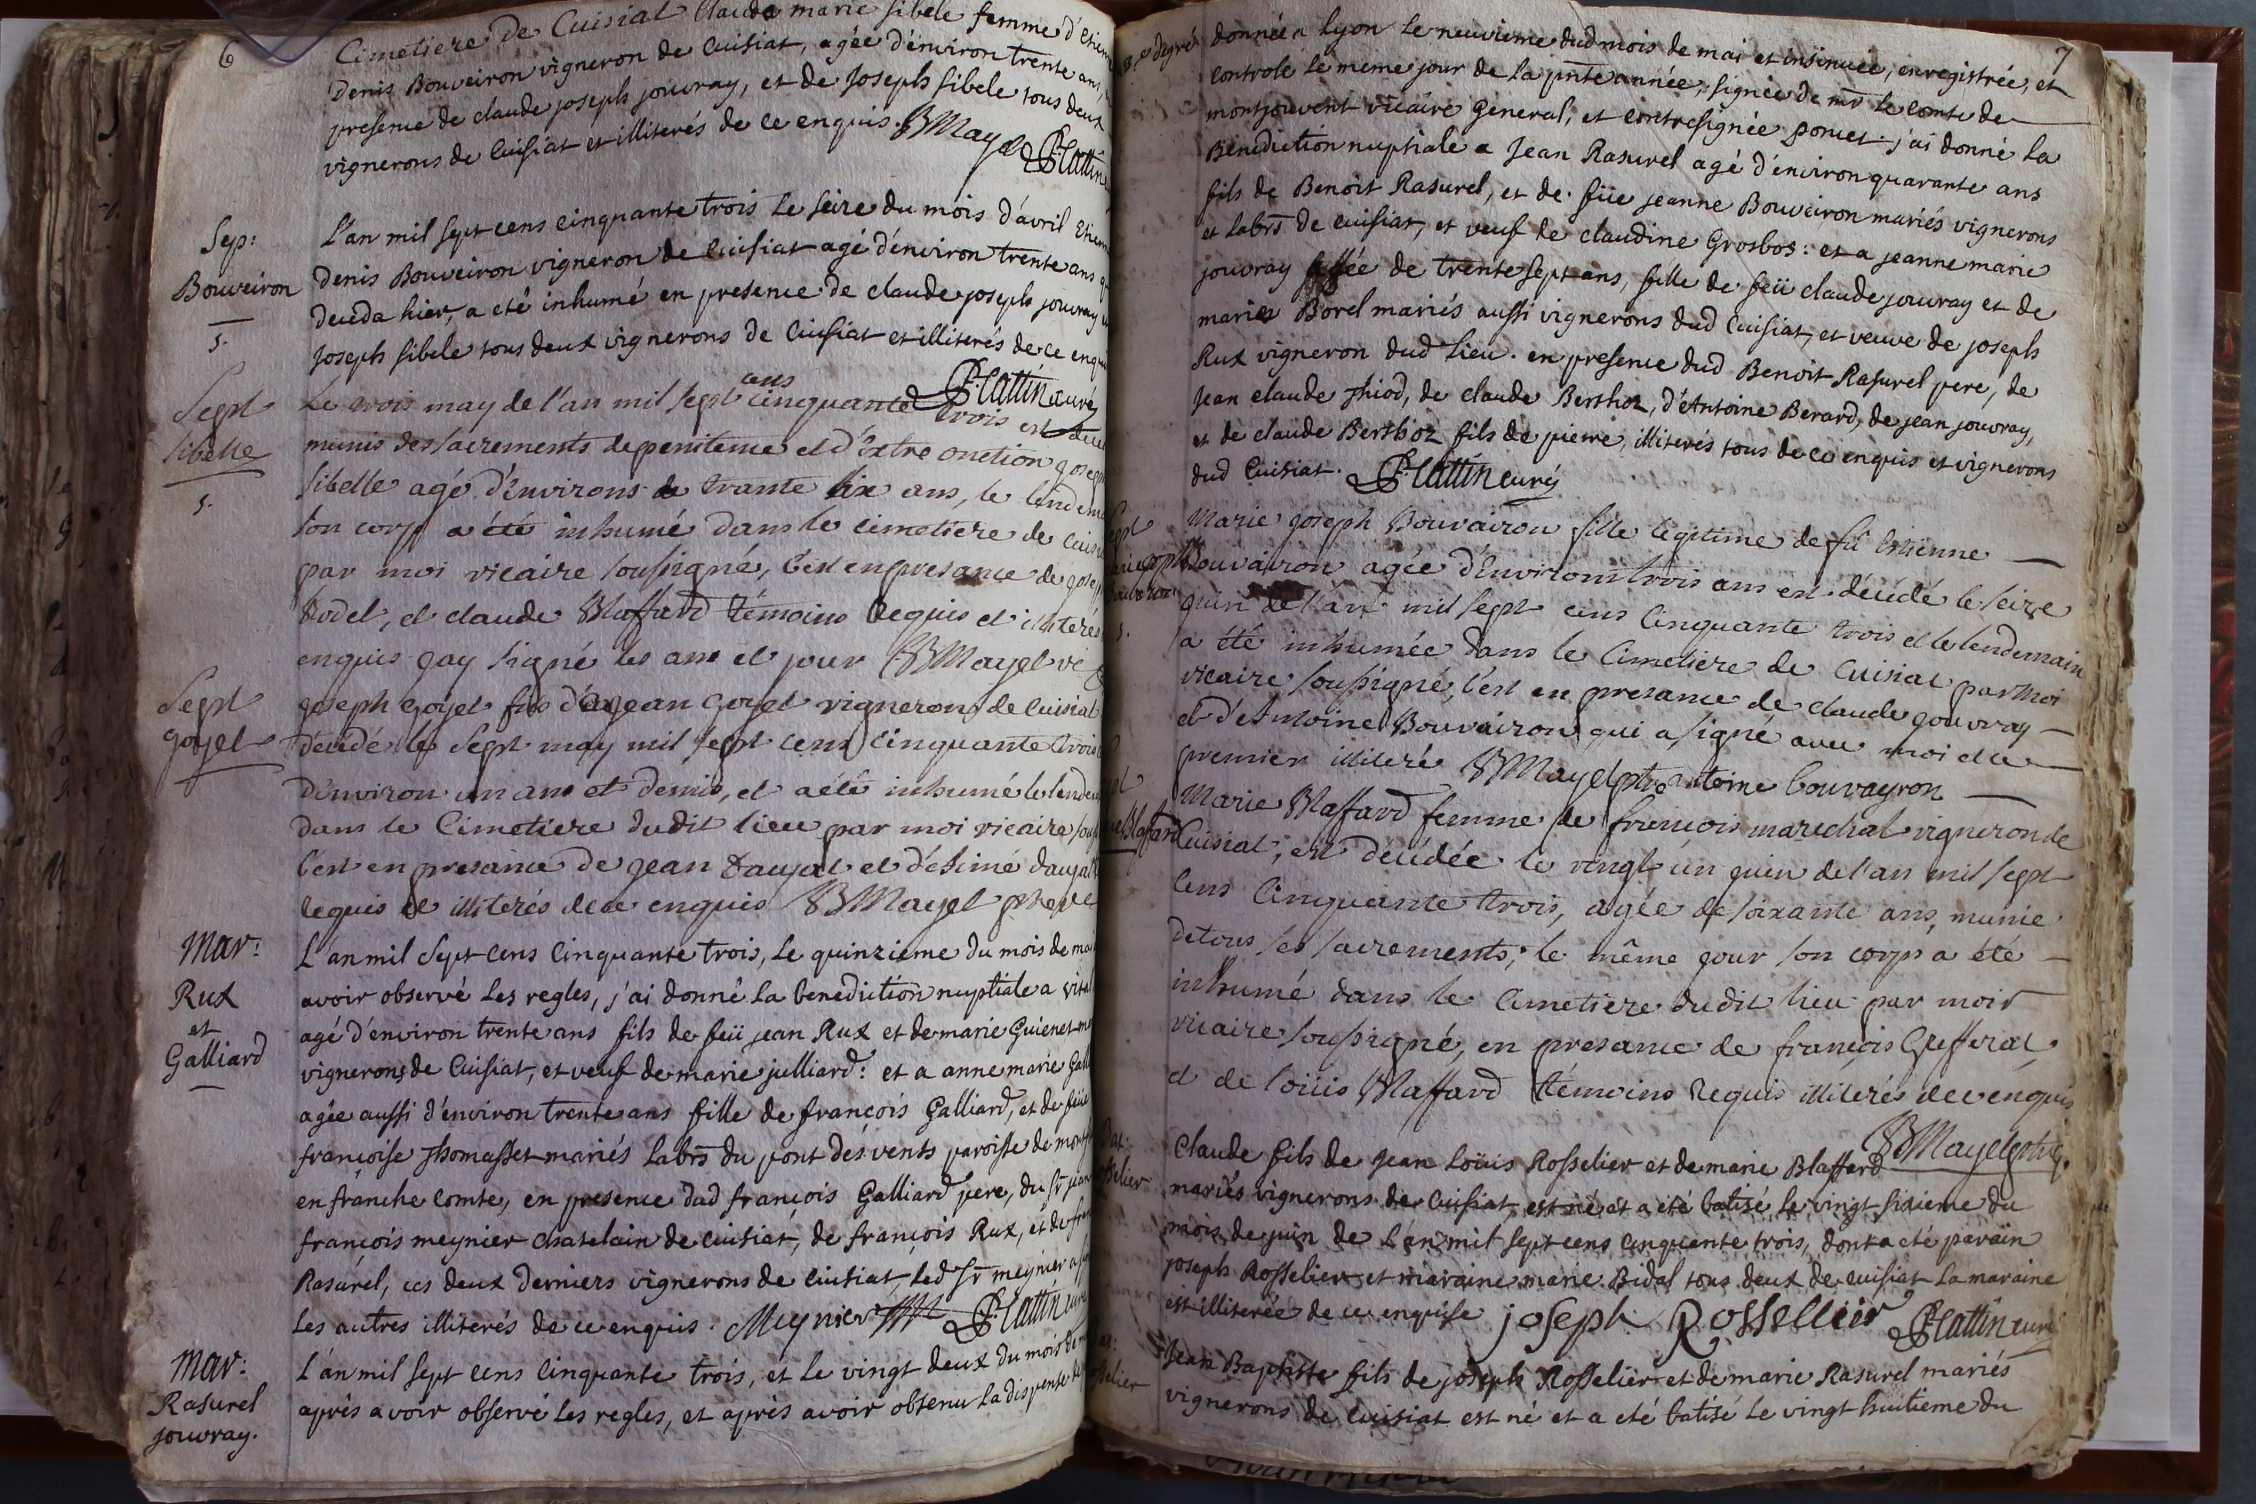 6
Cimetiere de Cuisiat Claude marie sibele femme d'Etien
Denis Bouveiron vigneron de Cuisiat, agée d'environ trente ans,
presence de claude joseph jouvray, et de Joseph sibele tous deux
vignerons de Cuisiat et illiterés de ce enquis. BMayel
P: Cattin
Sep:
Bouveiron
5.
L'an mil sept cens cinquante trois le seize du mois d'avril Etienn
Denis Bouveiron vigneron de Cuisiat agé d'environ trente ans q
deceda hier, a eté inhumé en presence de claude joseph jouvray
Joseph sibele tous deux vignerons de Cuisiat et illiterés de ce enqui
P: Cattin curé
Sept
sibelle
5.
Le trois may de l'an mil sept cens cinquante trois est dece
munis des sacrements de penitence et d'extre onction Josep
sibelle agé d'environs de trante six ans, le lendem
son corp a été inhumé dans le cimetiere de cuis
par moi vicaire soussigné, c'est en presance de josep
Bodet, et claude Blaffard témoins requis et illiterés
enquis jay signé les ans et jour BMayel vic
Sept
goyet
joseph goyet fils d'a jean goyet vignerons de Cuisiat
décédé le sept may mil sept cens cinquante trois
d'environ un ans et demis, et a été inhumé le lende
dans le Cimetiere dudit lieu par moi vicaire sous
c'est en presance de jean Daujat et d'ésimé daujat
requis et illiterés de ce enquis BMayel
Mar:
Rux
et
Galliard
L'an mil sept cens cinquante trois, le quinzieme du mois de mai
avoir observé les regles, j'ai donné la benediction nuptiale a vital
agé d'environ trente ans fils de feü jean Rux et de marie Guienet
vignerons de Cuisiat, et veuf de marie julliard: et a anne marie Gall
agée aussi d'environ trente ans fille de françois Galliard, et de feüe
françoise Thomasset mariés labrs du pont des vents paroisse de mont
en franche comte, en presence dud françois Galliard pere, du sr jean
françois meynier chatelain de cuisiat, de françois Rux, et de fran
Rasurel, ces deux derniers vignerons de Cuisiat, led sr meynier a
les autres illiterés de ce enquis. Meynier P: Cattin curé
Mar:
Rasurel
jouvray.
L'an mil sept cens cinquante trois, et le vingt deux du mois de
après avoir observé les regles, et après avoir obtenu la dispense
7
3.e degré donnée a Lyon le neuvieme dud mois de mai et insinuée, enregistrée, et
controle le meme jour de la pnte année, signée de mr le comte de
montjouvent vicaire general, et contresignée poncet. j'ai donné la
Benediction nuptiale a Jean Rasurel agé d'environ quarante ans
fils de Benoit Rasurel, et de feüe jeanne Bouveiron mariés vignerons
et labrs de cuisiat, et veuf de claudine Grosbos: et a jeanne marie
jouvray agée de trente sept ans, fille de feü claude jouvray et de
marie Borel mariés aussi vignerons dud Cuisiat, et veuve de joseph
Rux vigneron dud lieu. en presence dud Benoit Rasurel pere, de
jean claude Thiod, de claude Berthoz, d'Antoine Berard, de jean jouvray,
et de claude Berthoz fils de pierre, illiterés tous de ce enquis et vignerons
dud Cuisiat. P: Cattin curé
Marie joseph Bouvairon fille legitime de fû Estienne
Bouvairon agée d'environs trois ans est décédé le seize
juin de l'an mil sept cens cinquante trois et le lendemain
a été inhumée dans le Cimetiere de Cuisiat par moi
vicaire soussigné, c'est en presance de claude jouvray
et d'Antoine Bouvairon qui a signé avec moi et le
premier illiteré BMayel ptre antoine bouvayron
Blaffard
Marie Blaffard femme de françois marechal vigneron de
Cuisiat, est décédée le vingt un juin de l'an mil sept
cens Cinquante trois, agée de soixante ans, munie
de tous ses sacrements; le même jour son corps a été
inhumé dans le Cimetiere dudit lieu par moi
vicaire soussigné, en presance de françois Gefferat
et de loüis Blaffard témoins requis illiterés de ce enquis
BMayel
Claude fils de jean Loüis Rosselier et de marie Blaffard
mariés vignerons de Cuisiat, est né et a eté batisé le vingt sixieme du
mois de juin de l'an mil sept cens cinquante trois, dont a eté parain
joseph Rosselier et maraine marie Bidal tous deux de cuisiat la maraine
est illiterée de ce enquise joseph Rossellier P: Cattin curé
Jean Baptiste fils de joseph Rosselier et de marie Rasurel mariés
vignerons de Cuisiat est né et a eté batisé le vingt huitieme du